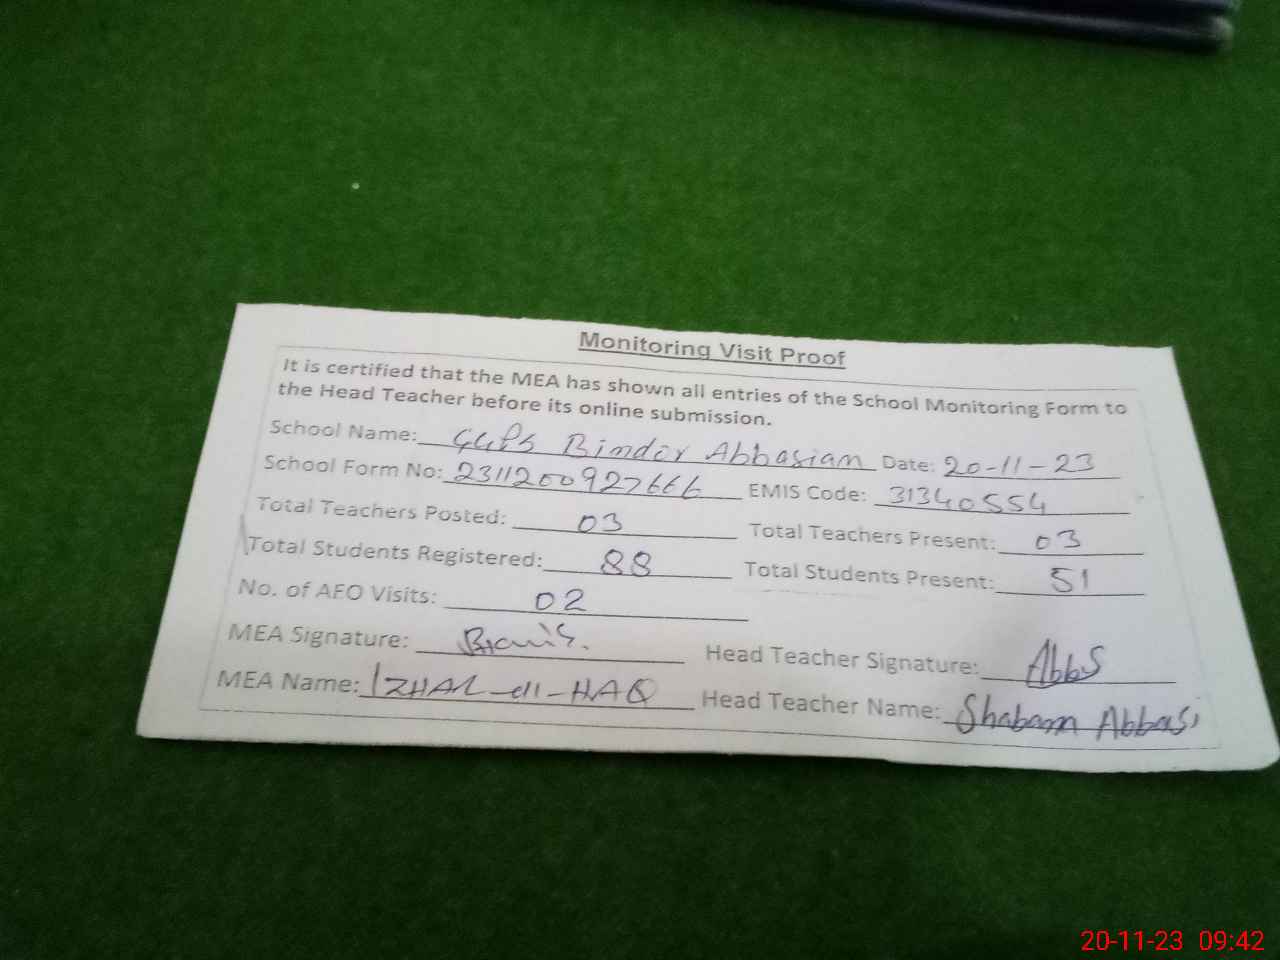 Monitoring Visit Proof
It is certified that the MEA has shown all entries of the School Monitoring Form to
the Head Teacher before its online submission.
School Name: GGPS Bindor Abbasian Date: 20-11-23
School Form No: 2311200927666 EMIS Code: 31340554
Total Teachers Posted: 03 Total Teachers Present: 03
Total Students Registered: 88 Total Students Present: 51
No. of AEO Visits: 02
MEA Signature: Head Teacher Signature: Abbs
MEA Name: IZHAR-ul-HAQ Head Teacher Name: Shabam Abbasi
20-11-23 09:42